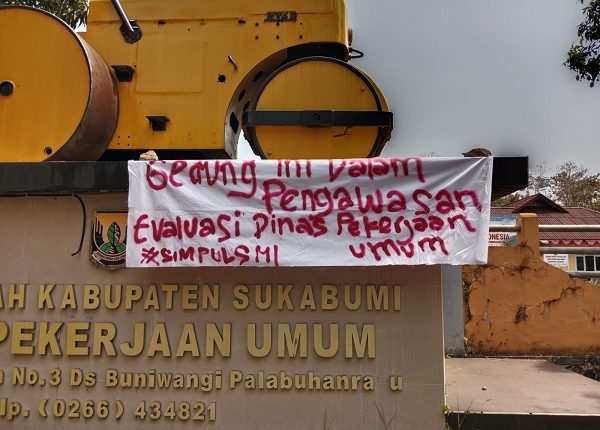 HYAR
GEDUNG INI DALAM
PENGAWASAN
EVALUASI DINAS PEKERJAAN
#SIMPULSMI UMUM
NESIA
AH KABUPATEN SUKABUMI
PEKERJAAN UMUM
No.3 Ds Buniwangi Palabuhanra u
lp. (0266) 434821